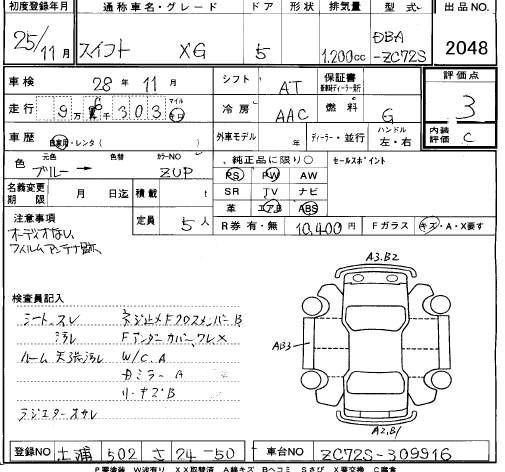 初度登録年月 通称車名・グレード ドア 形状 排気量 型式 出品NO.
25/11月 スイフト XG 5 1,200cc DBA-ZC72S 2048
車検 28年 11月 シフト AT 保証書 評価点
走行 9万 千303 マイル キロ 冷房 AAC 燃料 G 3
車歴 自家用・レンタ( ) 外車モデル 年 ディーラー・並行 ハンドル 左・右 内装評価 C
色 元色 色替 カラーNO 純正品に限り○ セールスポイント
ブルー→ ZUP PS PW AW
名義変更期限 月 日迄 積載 t SR TV ナビ
定員 5人 革 エアB ABS
注意事項 R券 有・無 10,400円 Fガラス キズ・A・X要す
オーディオなし
フィルムアンテナ跡
A3.B2
検査員記入
シート スレ ネジ止メFクロスメンバーB
汚レ Fアンダーカバーワレ✕
ルーム 天張汚レ W/C.A
AB3
ミラーA
リヤキズB
ラジエターオサレ
A2.B1
登録NO 土浦 502 さ 24-50 車台NO ZC72S-309916
P要塗装 W波有り XX取替済 A線キズ Bヘコミ Sさび X要交換 C腐食